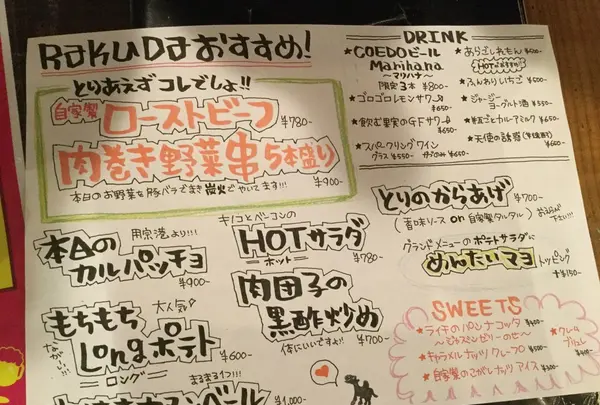 RAKUDAおすすめ!
とりあえずコレでしょ!!
自家製 ローストビーフ
¥780-
肉巻き野菜串5本盛り
¥900-
本日のお野菜を豚バラでまき炭火でやいてます!!!
用宗港より!!!
本日のカルパッチョ
¥900-
大人気♪
もちもち
Longポテト
ロング
¥600-
まるまる1つ!!!
¥1,000-
キノコとベーコンの
HOTサラダ
ホット
¥780-
肉団子の
黒酢炒め
体にいいですよ!!
¥700-
DRINK
★COEDOビール
Marihana
〜マリハナ〜
限定3本 ¥800-
★ゴロゴロレモンサワー
¥650-
★飲む果実のGFサワー
¥650-
★スパークリングワイン
グラス ¥550-
★あらごしれもん
HOT
★ふんわりいちご ¥600-
★ジャージー
ヨーグルト酒 ¥550-
★天使の誘惑
とりのからあげ
¥700-
(香味ソース or 自家製タルタル)
グランドメニューのポテトサラダに
めんたいマヨ
トッピング
+¥150-
SWEETS
★ライチのパンナコッタ
〜ジャスミンゼリーのせ〜
★キャラメルナッツクレープ
★自家製のさがしナッツアイス
★クレーム
ブリュレ